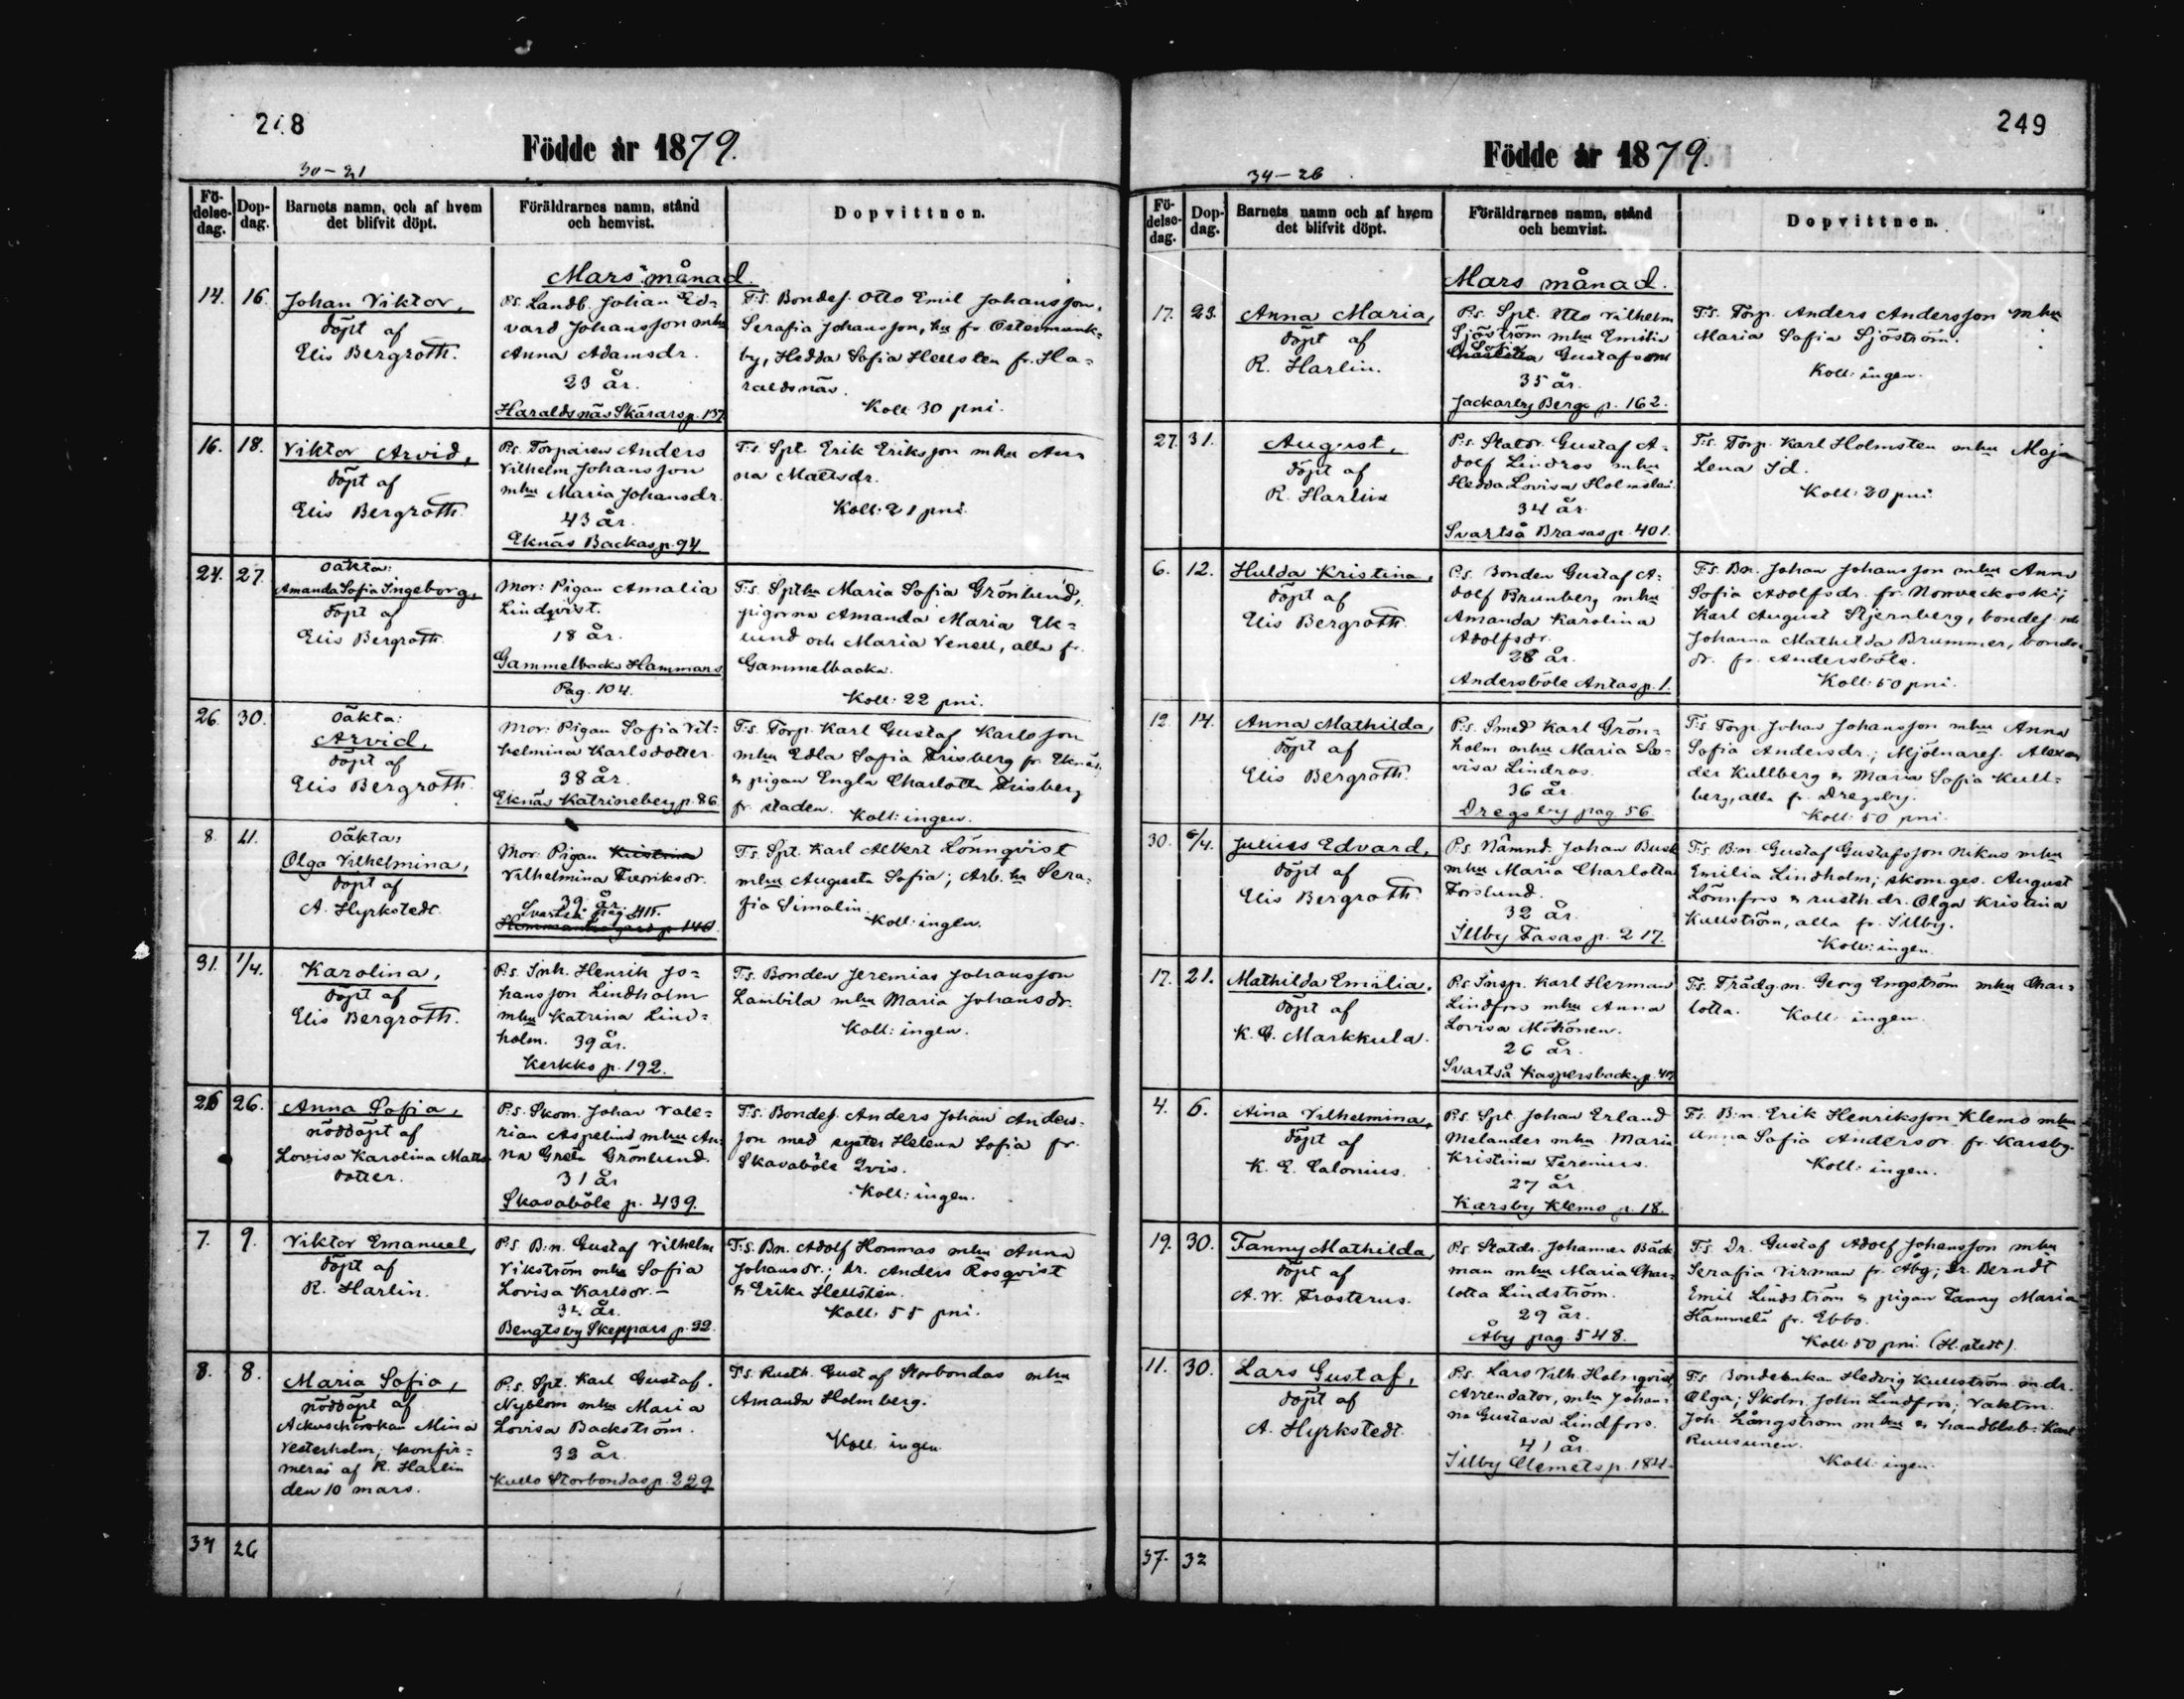 218
Födde år 1879.
30-21
Fö-
delse-
dag.
Dop-
dag.
Barnets namn, och af hvem
det blifvit döpt.
Föräldrarnes namn, stånd
och hemvist.
Dopvittnen.
Mars månad.
14. 16.
Johan Viktor,
döpt af
Elis Bergroth.
P:s. Landb. Johan Ed-
vard Johansson mhu
Anna Adamsdr.
23 år.
Haraldsnäs Skärars p. 137
F:s. Bondes. Otto Emil Johansson,
Serafia Johansson, hu fr. Östermunk-
by, Hedda Sofia Hellsten fr. Ha-
raldsnäs.
Koll: 30 pni.
16. 18.
Viktor Arvid,
döpt af
Elis Bergroth.
P:s. Torparen Anders
Vilhelm Johansson
mhu Maria Johansdr.
43 år.
Eknäs Backas p. 94.
F:s. Spt. Erik Eriksson mhu An-
na Mattsdr.
Koll: 21 pni.
24. 27.
Oäkta:
Amanda Sofia Ingeborg,
döpt af
Elis Bergroth.
Mor: Pigan Amalia
Lindqvist.
18 år.
Gammelbacka Hammars
Pag. 104.
F:s. Spthu Maria Sofia Grönlund,
pigorna Amanda Maria Ek-
lund och Maria Venell, alla fr.
Gammelbacka.
Koll: 22 pni.
26. 30.
Oäkta:
Arvid,
döpt af
Elis Bergroth.
Mor: Pigan Sofia Vil-
helmina Karlsdotter
38 år.
Eknäs Katrineberg p. 86.
F:s. Torp. Karl Gustaf Karlsson
mhu Edla Sofia Frisberg fr. Eknäs
& pigan Engla Charlotta Frisberg
fr. staden.
Koll: ingen.
8. 11.
Oäkta:
Olga Vilhelmina,
döpt af
A. Hyrkstedt.
Mor: Pigan Kristina
Vilhelmina Fredriksdr.
39 år.
Svartså pag. 415.
F:s. Spt. Karl Albert Lönnqvist
mhu Augusta Sofia; Arb. hu Sera-
fia Simolin.
Koll: ingen.
31. 1/4.
Karolina,
döpt af
Elis Bergroth.
P:s. Inh. Henrik Jo-
hansson Lindholm
mhu Katrina Lind-
holm. 39 år.
Kerkko p. 192.
F:s. Bonden Jeremias Johansson
Lambila mhu Maria Johansdr.
Koll: ingen.
26 26.
Anna Sofia,
nöddöpt af
Lovisa Karolina Matts-
dotter.
P:s. Skom. Johan Vale-
rian Aspelund mhu An-
na Greta Grönlund.
31 år
Skavaböle p. 439.
F:s. Bondes. Anders Johan Anders-
son med syster Helena Sofia fr.
Skavaböle 2vis.
Koll: ingen.
7. 9.
Viktor Emanuel,
döpt af
R. Harlin.
P:s. B:n. Gustaf Vilhelm
Vikström mhu Sofia
Lovisa Karlsdr.
34 år.
Bengtsby Skeppars p. 22.
F:s. Bn. Adolf Hommas mhu Anna
Johansdr.; Dr. Anders Rosqvist
& Erika Hellsten.
Koll: 55 pni.
8. 8.
Maria Sofia,
nöddöpt af
Ackuschörskan Mina
Vesterholm; konfir-
meras af R. Harlin
den 10 mars.
P:s. Spt. Karl Gustaf
Nyblom mhu Maria
Lovisa Backström.
32 år.
Kullo Storbondas p. 229
F:s. Rusth. Gustaf Storbondas mhu
Amanda Holmberg.
Koll. ingen
34 26
249
Födde år 1879.
34-26
Fö-
delse-
dag.
Dop-
dag.
Barnets namn och af hvem
det blifvit döpt.
Föräldrarnes namn, stånd
och hemvist.
Dopvittnen.
Mars månad.
17. 23.
Anna Maria,
döpt af
R. Harlin.
P:s. Spt. Otto Vilhelm
Sjöström mhu Emilia
Sofia Gustafsdr.
35 år.
Jackarby Berg p. 162.
F:s. Torp. Anders Andersson mhu
Maria Sofia Sjöström.
Koll: ingen.
27. 31.
August,
döpt af
R. Harlin
P:s. Statdr. Gustaf A-
dolf Lindros mhu
Hedda Lovisa Holmsten.
34 år
Svartså Brasas p. 401.
F:s. Torp. Karl Holmsten mhu Maja
Lena Id.
Koll: 20 pni.
6. 12.
Hulda Kristina,
döpt af
Elis Bergroth.
P:s. Bonden Gustaf A-
dolf Brunberg mhu
Amanda Karolina
Adolfsdr.
28 år.
Andersböle Antas p. 1.
F:s. Bn. Johan Johansson mhu Anna
Sofia Adolfsdr. fr. Norveckoski;
Karl August Stjernberg, bondes. och
Johanna Mathilda Brummer, bonde-
dr. fr. Andersböle.
Koll: 50 pni.
12. 14.
Anna Mathilda,
döpt af
Elis Bergroth.
P:s. Smed Karl Grön-
holm mhu Maria Lo-
visa Lindros.
36 år.
Dregsby pag. 56
F:s. Torp. Johan Johansson mhu Anna
Sofia Andersdr.; Mjölnares. Alexan
der Kullberg & Maria Sofia Kull-
berg, alla fr. Dregsby.
Koll: 50 pni.
30. 6/4.
Julius Edvard,
döpt af
Elis Bergroth.
P:s. Nämnd. Johan Busk
mhu Maria Charlotta
Forslund.
32 år.
Illby Fasas p. 217.
F:s. B:n. Gustaf Gustafsson Nikus mhu
Emilia Lindholm; skom.ges. August
Lönnfors & rusth.dr. Olga Kristina
Kullström, alla fr. Illby.
Koll: ingen.
17. 21.
Mathilda Emilia,
döpt af
K. G. Markkula.
P:s. Insp. Karl Herman
Lindfors mhu Anna
Lovisa Mökönen.
26 år.
Svartså Kaspersbacka p.
F:s. Trädg.m. Georg Engström mhu Char-
lotta.
Koll: ingen.
4. 6.
Aina Vilhelmina,
döpt af
K. E. Calonius.
P:s. Spt. Johan Erland
Melander mhu Maria
Kristina Terenius.
27 år
Karsby Klemo p. 18.
F:s. B:n. Erik Henriksson Klemo mhu
Anna Sofia Andersdr. fr. Karsby.
Koll: ingen.
19. 30.
Fanny Mathilda,
döpt af
A. W. Frosterus.
P:s. Statdr. Johannes Bäck
man mhu Maria Char-
lotta Lindström.
29 år.
Åby pag. 548.
F:s. Dr. Gustaf Adolf Johansson mhu
Serafia Virman fr. Åby; Dr. Berndt
Emil Lindström & pigan Fanny Maria
Hammelä fr. Ebbo.
Koll: 50 pni. (H.stedt).
11. 30.
Lars Gustaf,
döpt af
A. Hyrkstedt.
P:s. Lars Vilh. Holmqvist,
Arrendator, mhu Johan-
na Gustava Lindfors.
41 år.
Illby Clemets p. 184.
F:s. Bondeenkan Hedvig Kullström m.dr.
Olga; Skolm. John Lindfors; Vaktm.
Joh. Långström mhu & handblsb. Karl
Ruusunen.
Koll: ingen.
37. 32